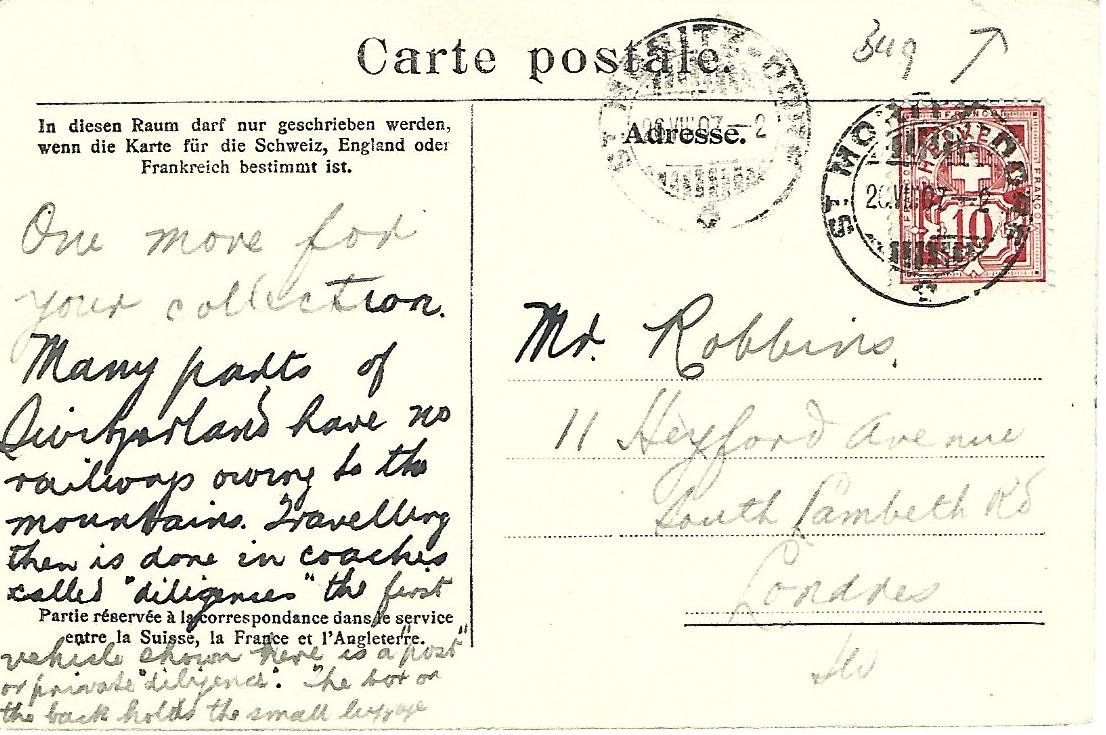 Carte postale.
Bug
In diesen Raum darf nur geschrieben werden,
wenn die Karte für die Schweiz, England oder
Frankreich bestimmt ist.
One more for
your collection.
Many parts of
Switzerland have no
railways owing to the
mountains. Travelling
then is done in coaches
called "diligences" the first
Partie réservée à la correspondance dans le service
entre la Suisse, la France et l'Angleterre.
vehicle shown here is a "post"
or private "diligence". The box on
the back holds the small luggage
Adresse.
ST MORITZ-DORF
26 VIII 07 — 2
ST MORITZ-DORF
26 VIII 07 — 2
FRANCO
HELVETIA
10
Mr. Robbins,
11 Heyford Avenue
South Lambeth Rd
Londres
SW